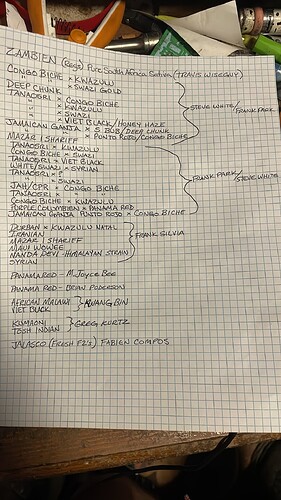 ZAMBIEN (Reg) Pure South Africa Sativa (TRAVIS WISEGUY)
CONGO BICHE x KWAZULU
" x SWAZI GOLD
DEEP CHUNK
TANAOSRI x CONGO BICHE
" x KWAZULU
" x SWAZI
" x VIET BLACK/HONEY HAZE
JAMAICAN GANJA x S. BUB/DEEP CHUNK
" x PONTO ROJO/CONGO BICHE
MAZAR I SHARIFF
STEVE WHITE/FRANK PARK
TANAOSRI x KWAZULU
CONGO BICHE x SWAZI
TANAOSRI x VIET BLACK
WHITE/SWAZI x SYRIAN
TANAOSRI x ?
" x SWAZI
JAH/CPR x CONGO BICHE
TANAOSRI x "
CONGO BICHE x KWAZULU
PURPLE COLOMBIEN x PANAMA RED
JAMAICAN GANJA PUNTO ROJO x CONGO BICHE
FRANK PARK/STEVE WHITE
DURBAN x KWAZULU NATAL
IRANIAN
MAZAR I SHARIEF
MAUI WOWEE
NANDA DEVI - HIMALAYAN STRAIN
SYRIAN
FRANK SILVIA
PANAMA RED - M. JOYCE BEE
PANAMA RED - BRIAN
AFRICAN MALAWI
VIET BLACK
KWANG BIN
KUMAONI
TOSH INDIAN
GREG KURTZ
JALASCO (FRESH F2's) FABIEN COMPOS